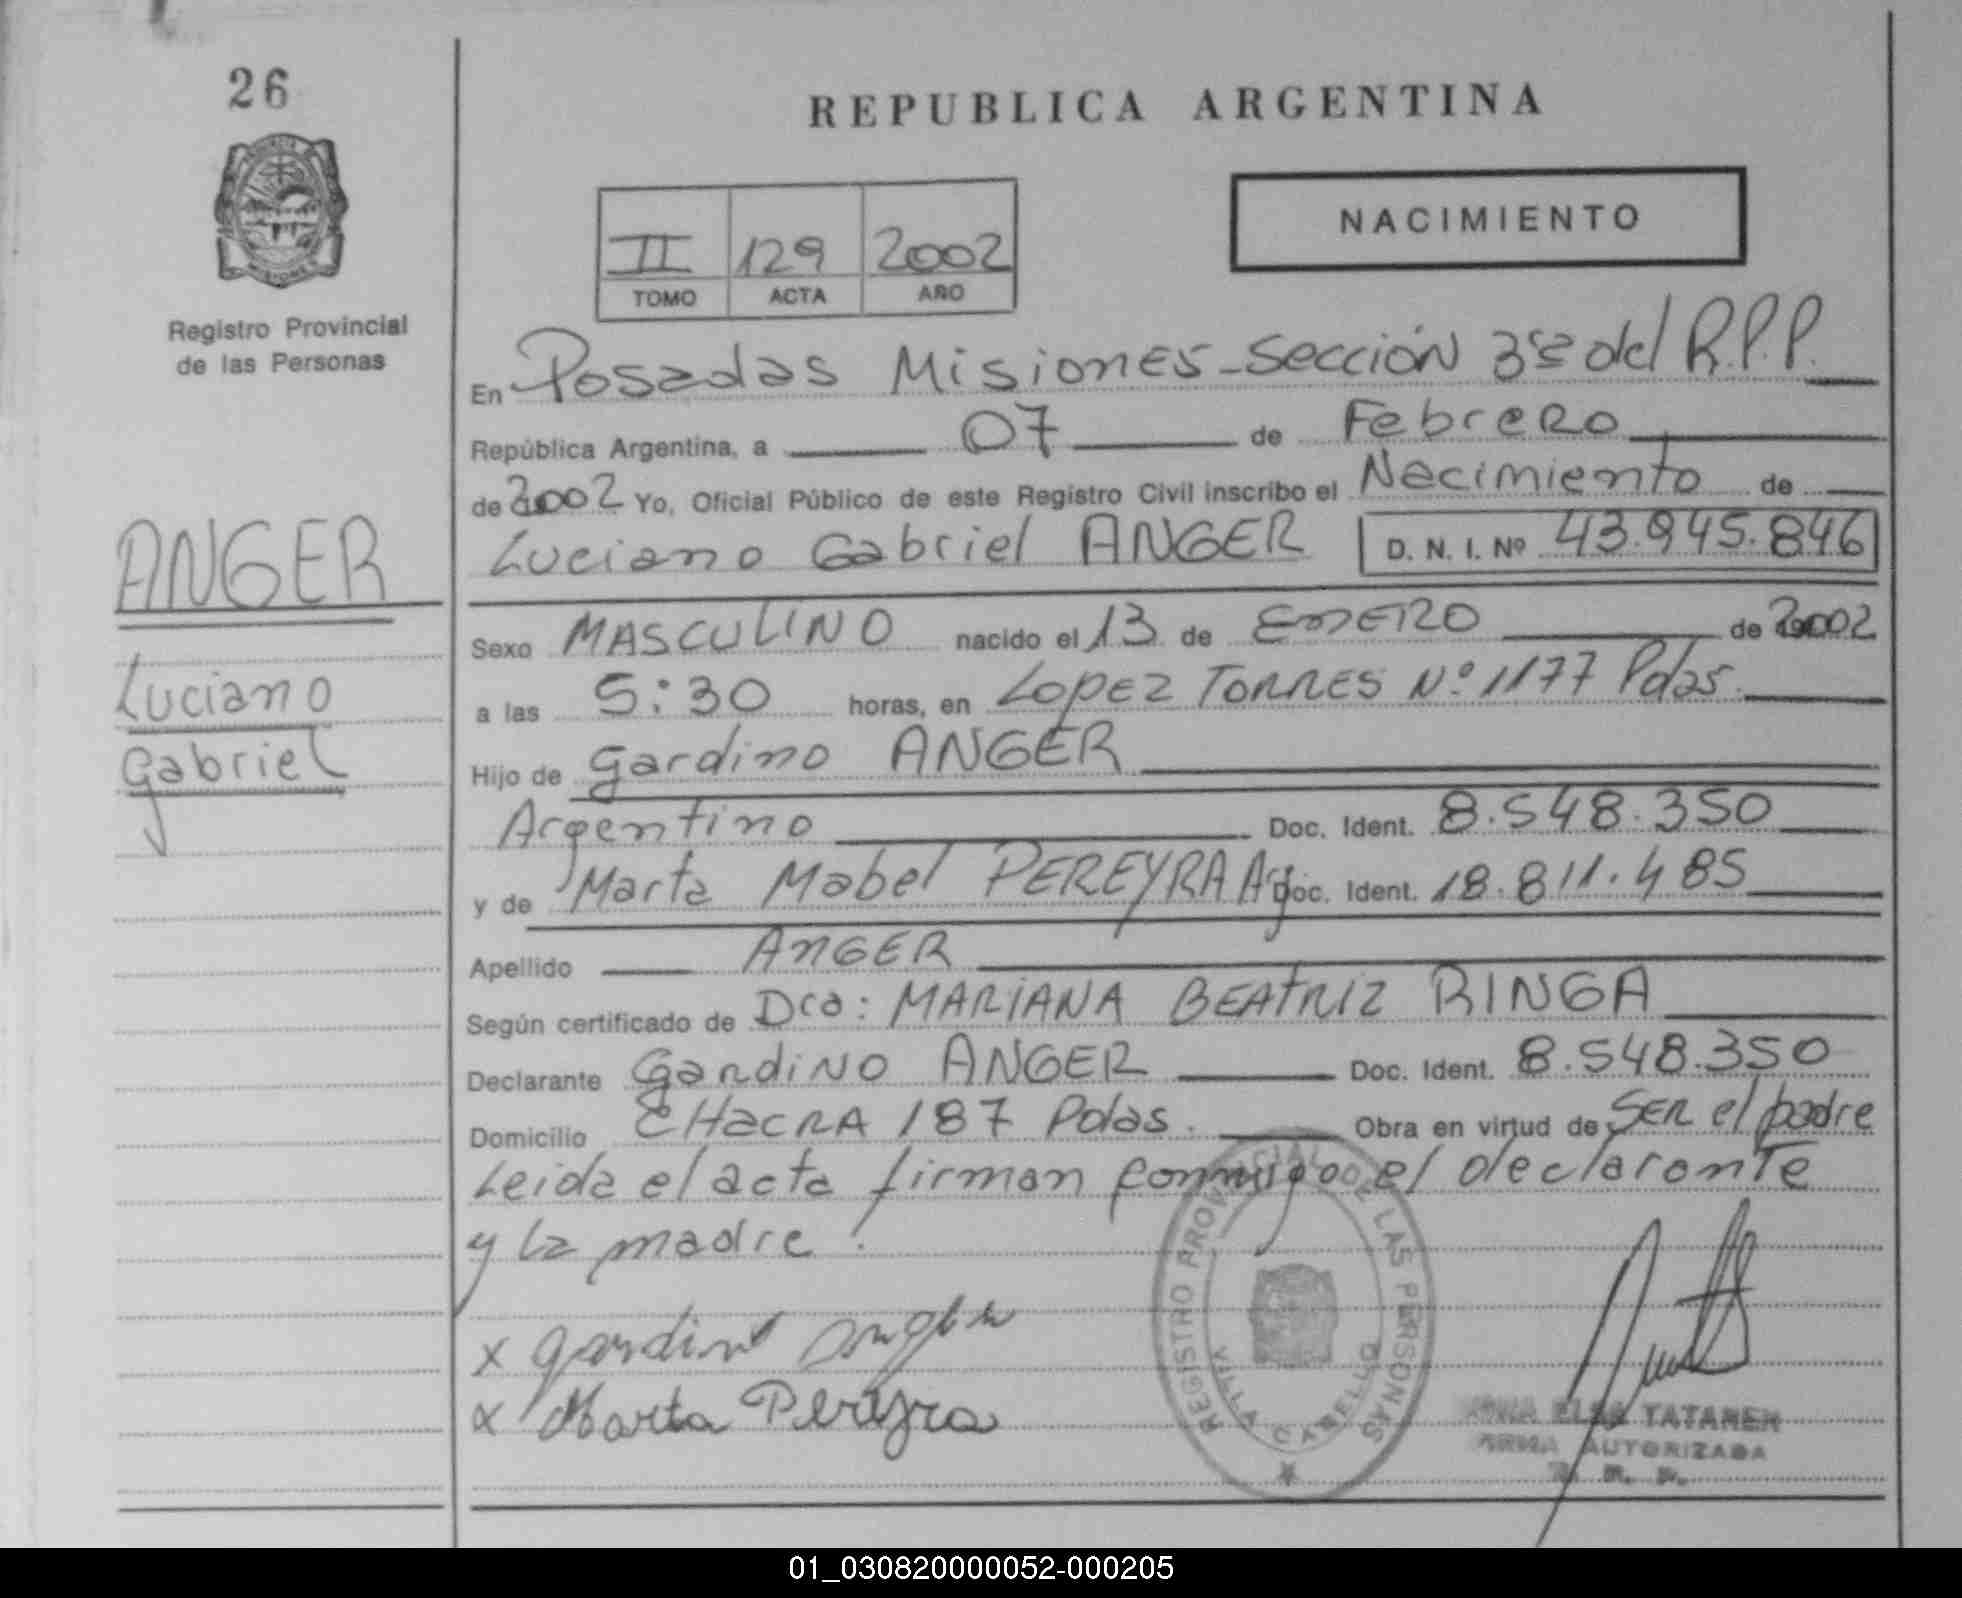 26
REPUBLICA ARGENTINA
NACIMIENTO
II 129 2002
TOMO ACTA AÑO
Registro Provincial
de las Personas
En Posadas Misiones - Sección 3ra del R.P.P.
República Argentina, a 07 de Febrero
de 2002 Yo, Oficial Público de este Registro Civil inscribo el Nacimiento de
Luciano Gabriel ANGER D. N. I. Nº 43.945.846
ANGER
Luciano
Gabriel
Sexo MASCULINO nacido el 13 de ENERO de 2002
a las 5:30 horas, en Lopez TORRES Nº 1177 Pdas.
Hijo de Gardino ANGER
Argentino Doc. Ident. 8.548.350
y de Marta Mabel PEREYRA Arg. Doc. Ident. 18.811.485
Apellido ANGER
Según certificado de Dra: MARIANA BEATRIZ RINGA
Declarante Gardino ANGER Doc. Ident. 8.548.350
Domicilio CHACRA 187 Pdas. Obra en virtud de SER el padre
Leida el acta firman conmigo el declarante
y la madre.
x Gardino Anger
x Marta Pereyra
REGISTRO PROVINCIAL DE LAS PERSONAS
VILLA CABELLO
ELSA TATAREN
FIRMA AUTORIZADA
R. P. P.
01_030820000052-000205